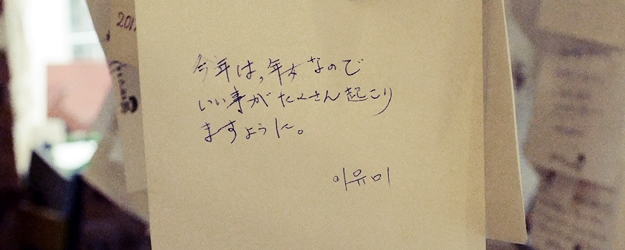 今年は,年女なので
いい事がたくさん起こり
ますように。
이유미
201